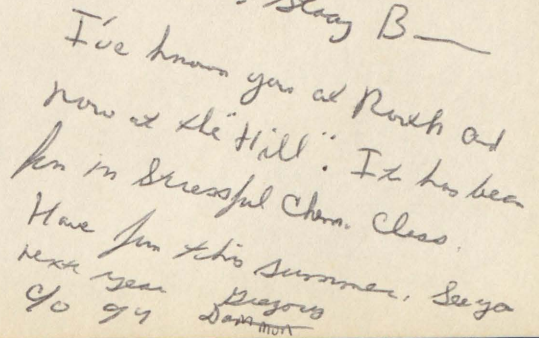 Stacy B
I've known you at North and
now at the "Hill". It has been
fun in Stressful Chem. Class.
Have fun this summer. See ya
next year Gregory
c/o 94 Dammon